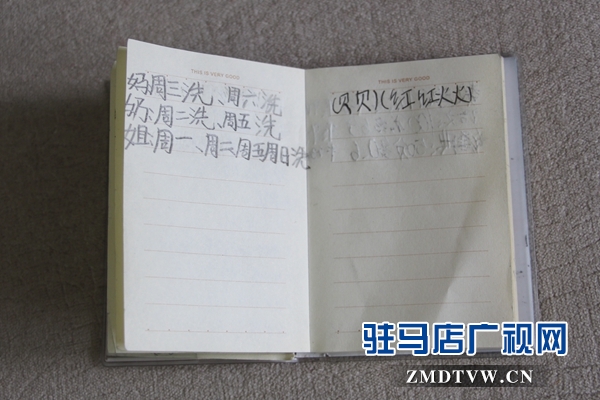 THIS IS VERY GOOD
妈:周三洗、周六洗
奶:周二洗、周五洗
姐:周一、周二周五周日洗
THIS IS VERY GOOD
(贝贝)(红红火火)
驻马店广视网
ZMDTVW.CN